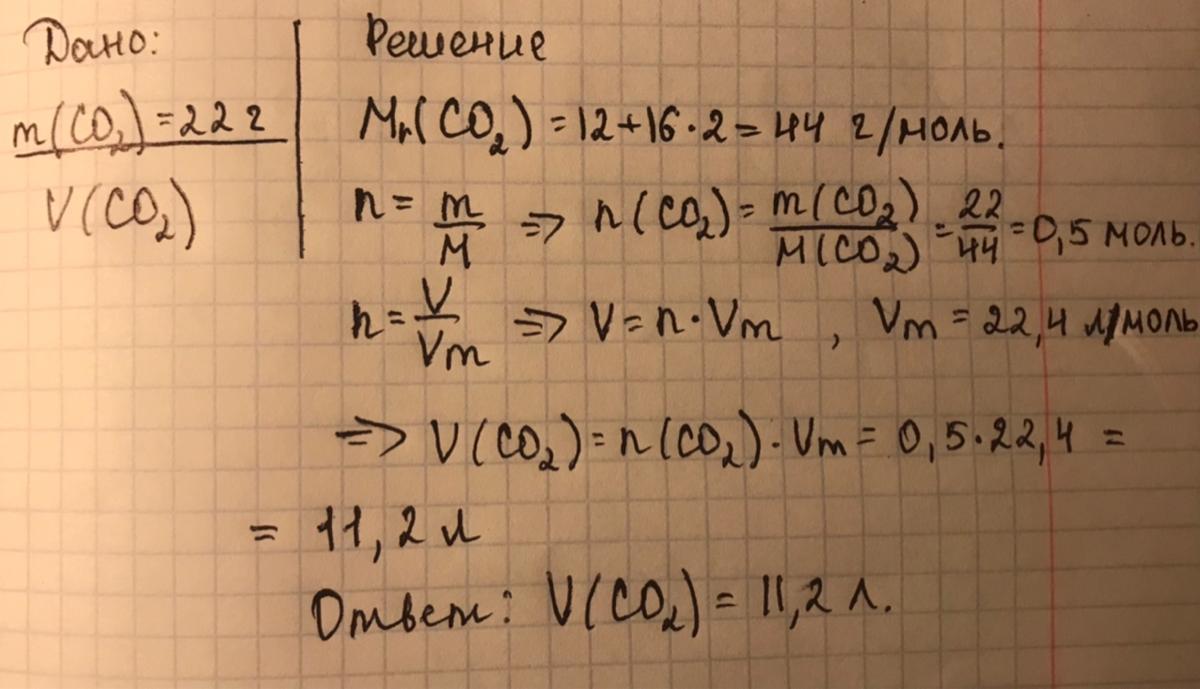 Дано:
m(CO₂)=22 г
V(CO₂)
Решение
Mr(CO₂)=12+16·2=44 г/моль.
n = m/M => n(CO₂) = m(CO₂)/M(CO₂) = 22/44 = 0,5 моль.
n = V/Vm => V = n·Vm , Vm = 22,4 л/моль
=> V(CO₂) = n(CO₂)·Vm = 0,5·22,4 =
= 11,2 л
Ответ: V(CO₂) = 11,2 л.